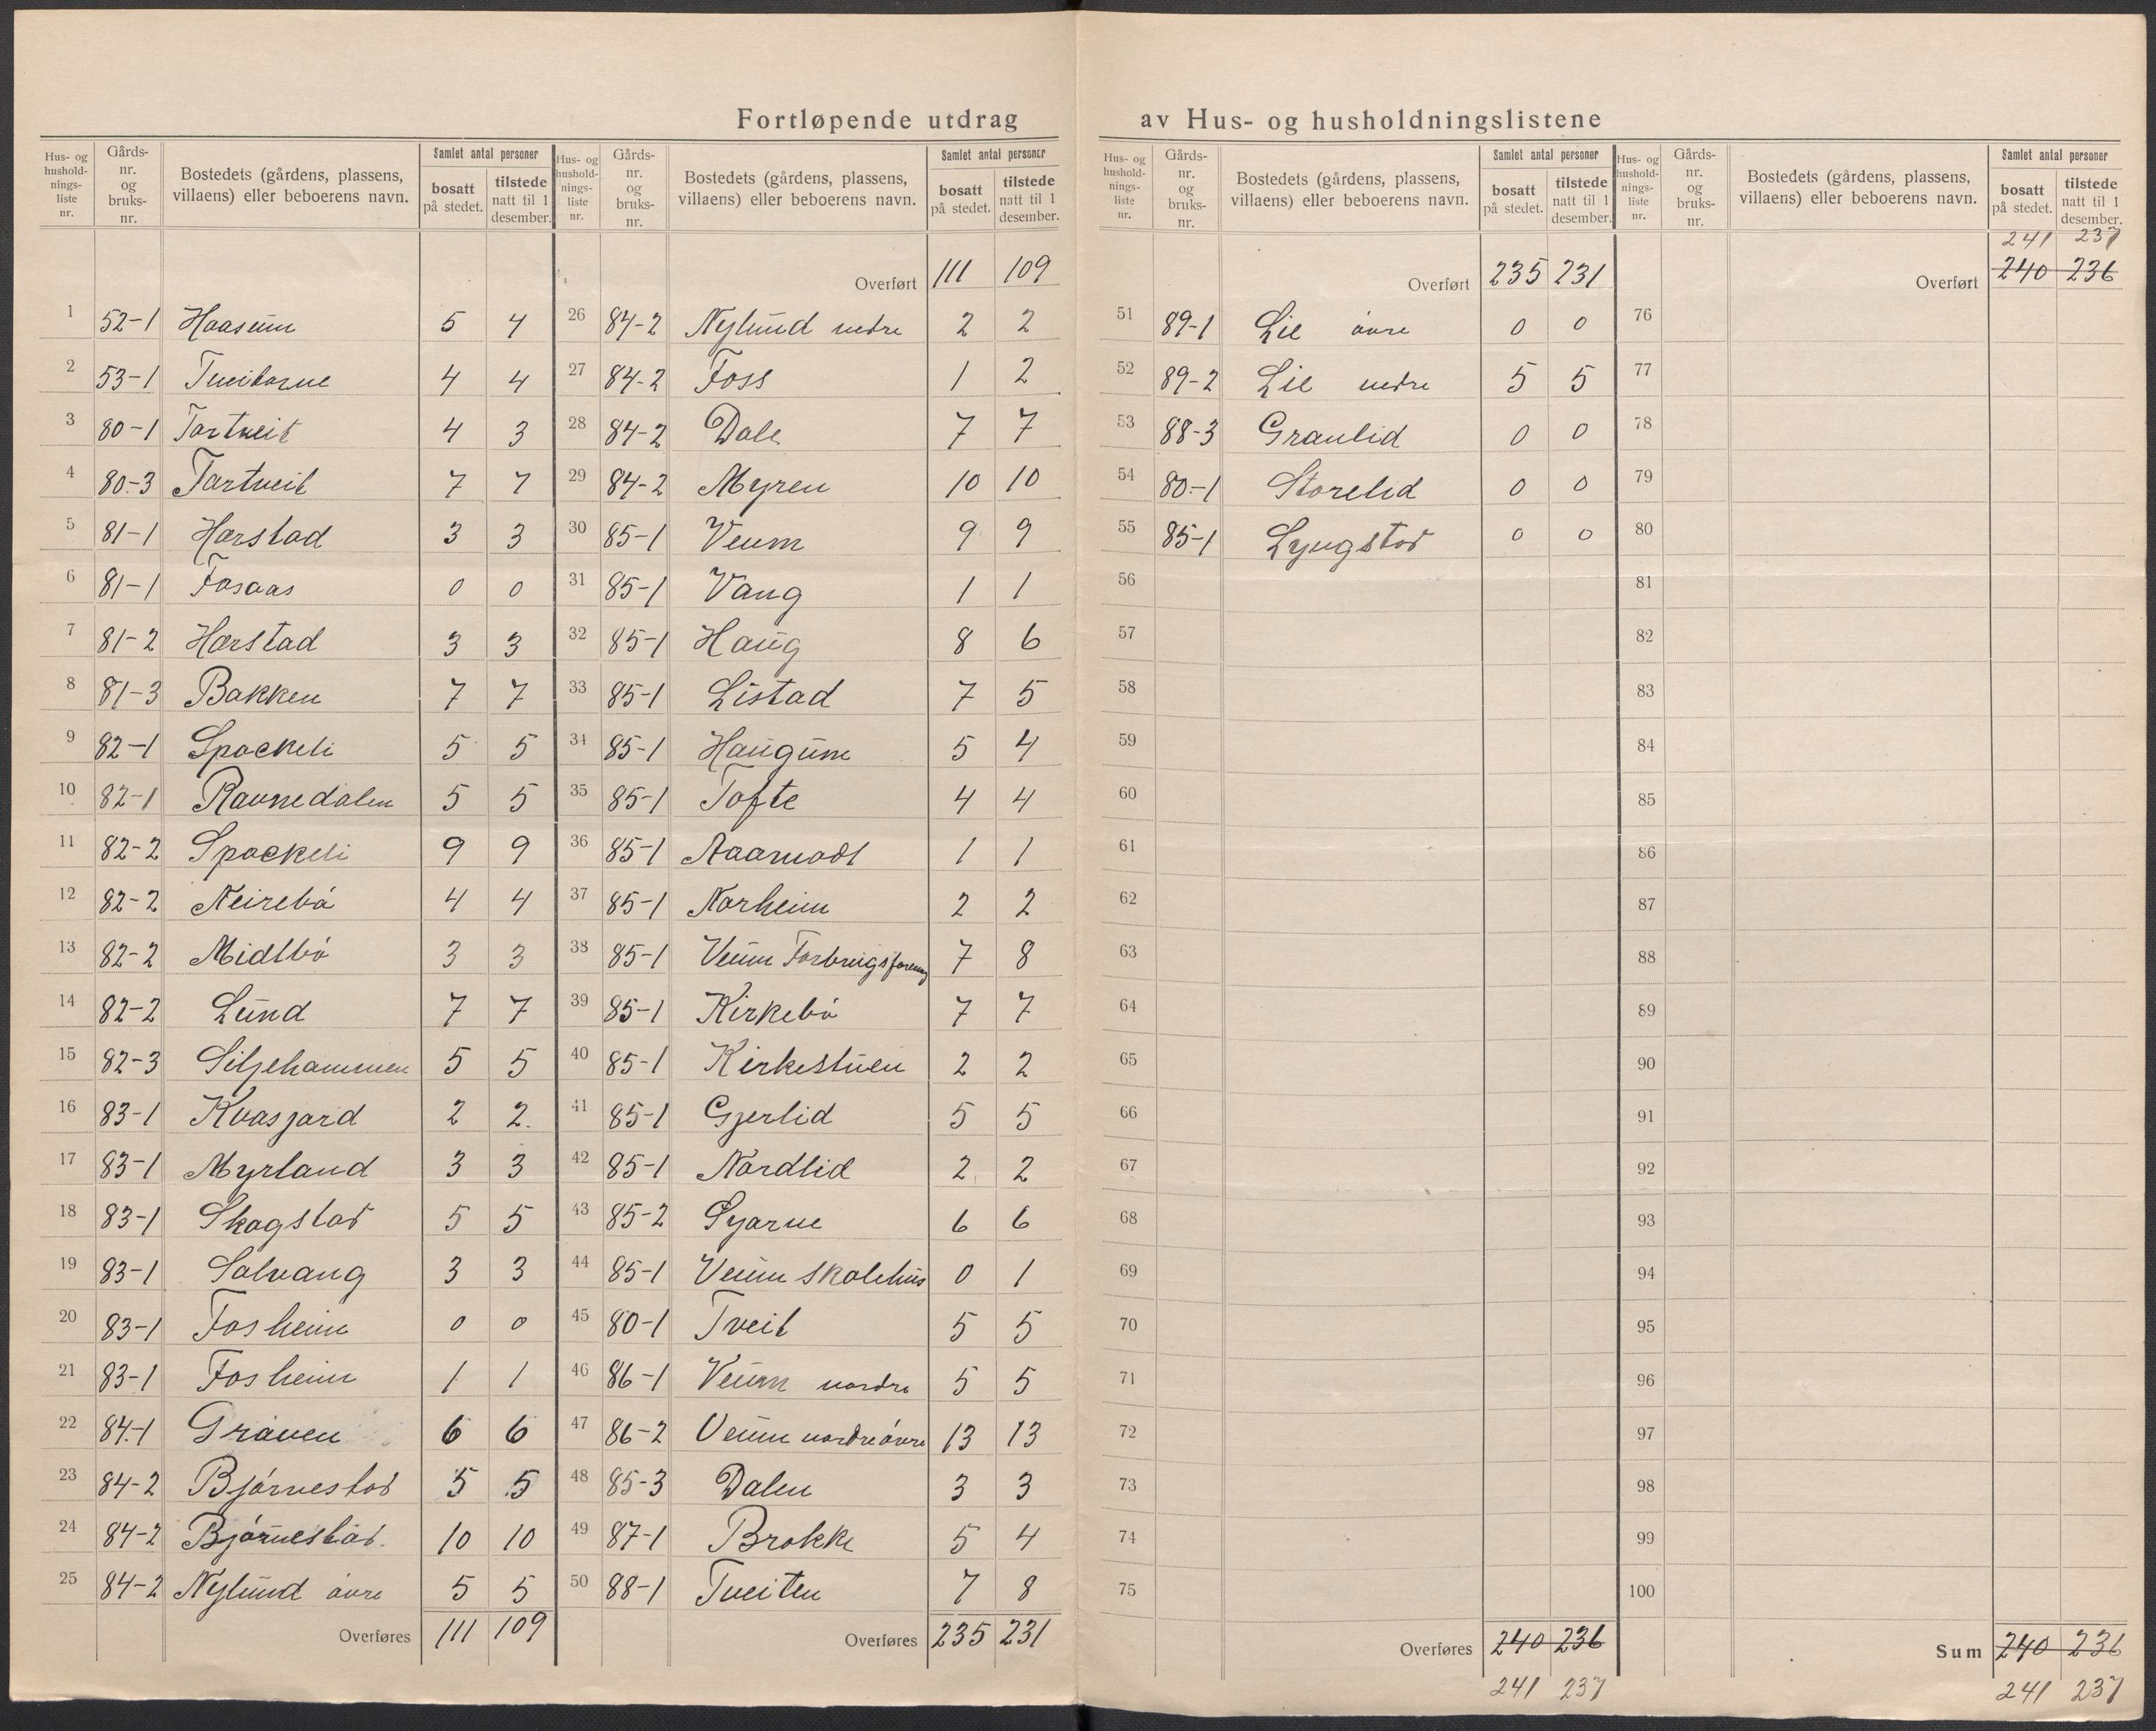 Fortløpende utdrag av Hus- og husholdningslistene
Hus- og hushold- nings- liste nr. | Gårds- nr. og bruks- nr. | Bostedets (gårdens, plassens, villaens) eller beboerens navn. | Samlet antal personer | bosatt på stedet. | tilstede natt til 1 desember.
1 52-1 Haasum 5 4
2 53-1 Tveitorne 4 4
3 80-1 Tortveit 4 3
4 80-3 Tortveit 7 7
5 81-1 Harstad 3 3
6 81-1 Fosaas 0 0
7 81-2 Harstad 3 3
8 81-3 Bakken 7 7
9 82-1 Spockeli 5 5
10 82-1 Ravnedalen 5 5
11 82-2 Spockeli 9 9
12 82-2 Neirebö 4 4
13 82-2 Midtbö 3 3
14 82-2 Lund 7 7
15 82-3 Siljehammen 5 5
16 83-1 Kvasjord 2 2
17 83-1 Myrland 3 3
18 83-1 Skogstad 5 5
19 83-1 Solvang 3 3
20 83-1 Fosheim 0 0
21 83-1 Fosheim 1 1
22 84-1 Gröven 6 6
23 84-2 Björnestad 5 5
24 84-2 Björnestad 10 10
25 84-2 Nylund övre 5 5
Overføres 111 109
Hus- og hushold- nings- liste nr. | Gårds- nr. og bruks- nr. | Bostedets (gårdens, plassens, villaens) eller beboerens navn. | Samlet antal personer | bosatt på stedet. | tilstede natt til 1 desember.
Overført 111 109
26 84-2 Nylund nedre 2 2
27 84-2 Foss 1 2
28 84-2 Dale 7 7
29 84-2 Myren 10 10
30 85-1 Veum 9 9
31 85-1 Vang 1 1
32 85-1 Haug 8 6
33 85-1 Listad 7 5
34 85-1 Haugum 5 4
35 85-1 Tofte 4 4
36 85-1 Aamodt 1 1
37 85-1 Norheim 2 2
38 85-1 Veum Forbrugsforening 7 8
39 85-1 Kirkebö 7 7
40 85-1 Kirkestuen 2 2
41 85-1 Gjerlid 5 5
42 85-1 Nordlid 2 2
43 85-2 6 6
44 85-1 Veum skolehus 0 1
45 80-1 Tveit 5 5
46 86-1 Veum nordre 5 5
47 86-2 Veum nordre övre 13 13
48 85-3 Dalen 3 3
49 87-1 Brokke 5 4
50 88-1 Tveiten 7 8
Overføres 235 231
Hus- og hushold- nings- liste nr. | Gårds- nr. og bruks- nr. | Bostedets (gårdens, plassens, villaens) eller beboerens navn. | Samlet antal personer | bosatt på stedet. | tilstede natt til 1 desember.
Overført 235 231
51 89-1 Lie övre 0 0
52 89-2 Lie nedre 5 5
53 88-3 Granlid 0 0
54 80-1 Storelid 0 0
55 85-1 Lyngstad 0 0
56
57
58
59
60
61
62
63
64
65
66
67
68
69
70
71
72
73
74
75
Overføres 240 236
241 237
Hus- og hushold- nings- liste nr. | Gårds- nr. og bruks- nr. | Bostedets (gårdens, plassens, villaens) eller beboerens navn. | Samlet antal personer | bosatt på stedet. | tilstede natt til 1 desember.
241 237
Overført 240 236
76
77
78
79
80
81
82
83
84
85
86
87
88
89
90
91
92
93
94
95
96
97
98
99
100
Sum 240 236
241 237